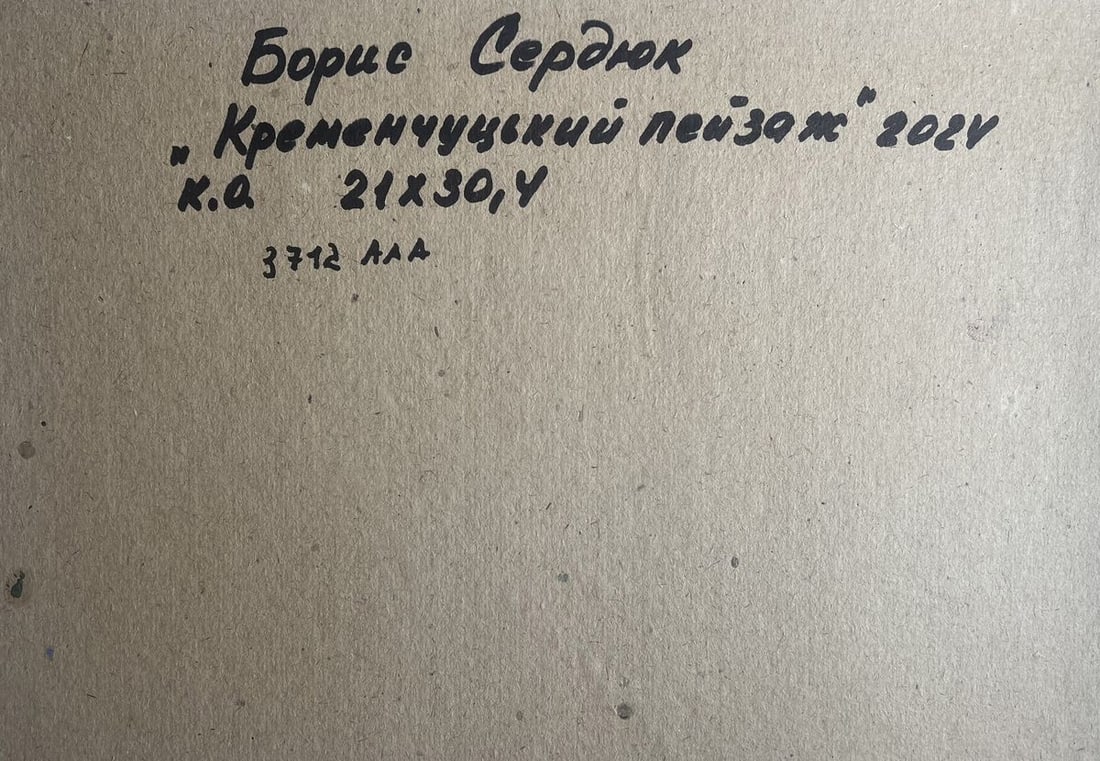 Борис Сердюк
„Кременчуцький пейзаж" 2024
К.О. 21х30,4
3712 АЛА